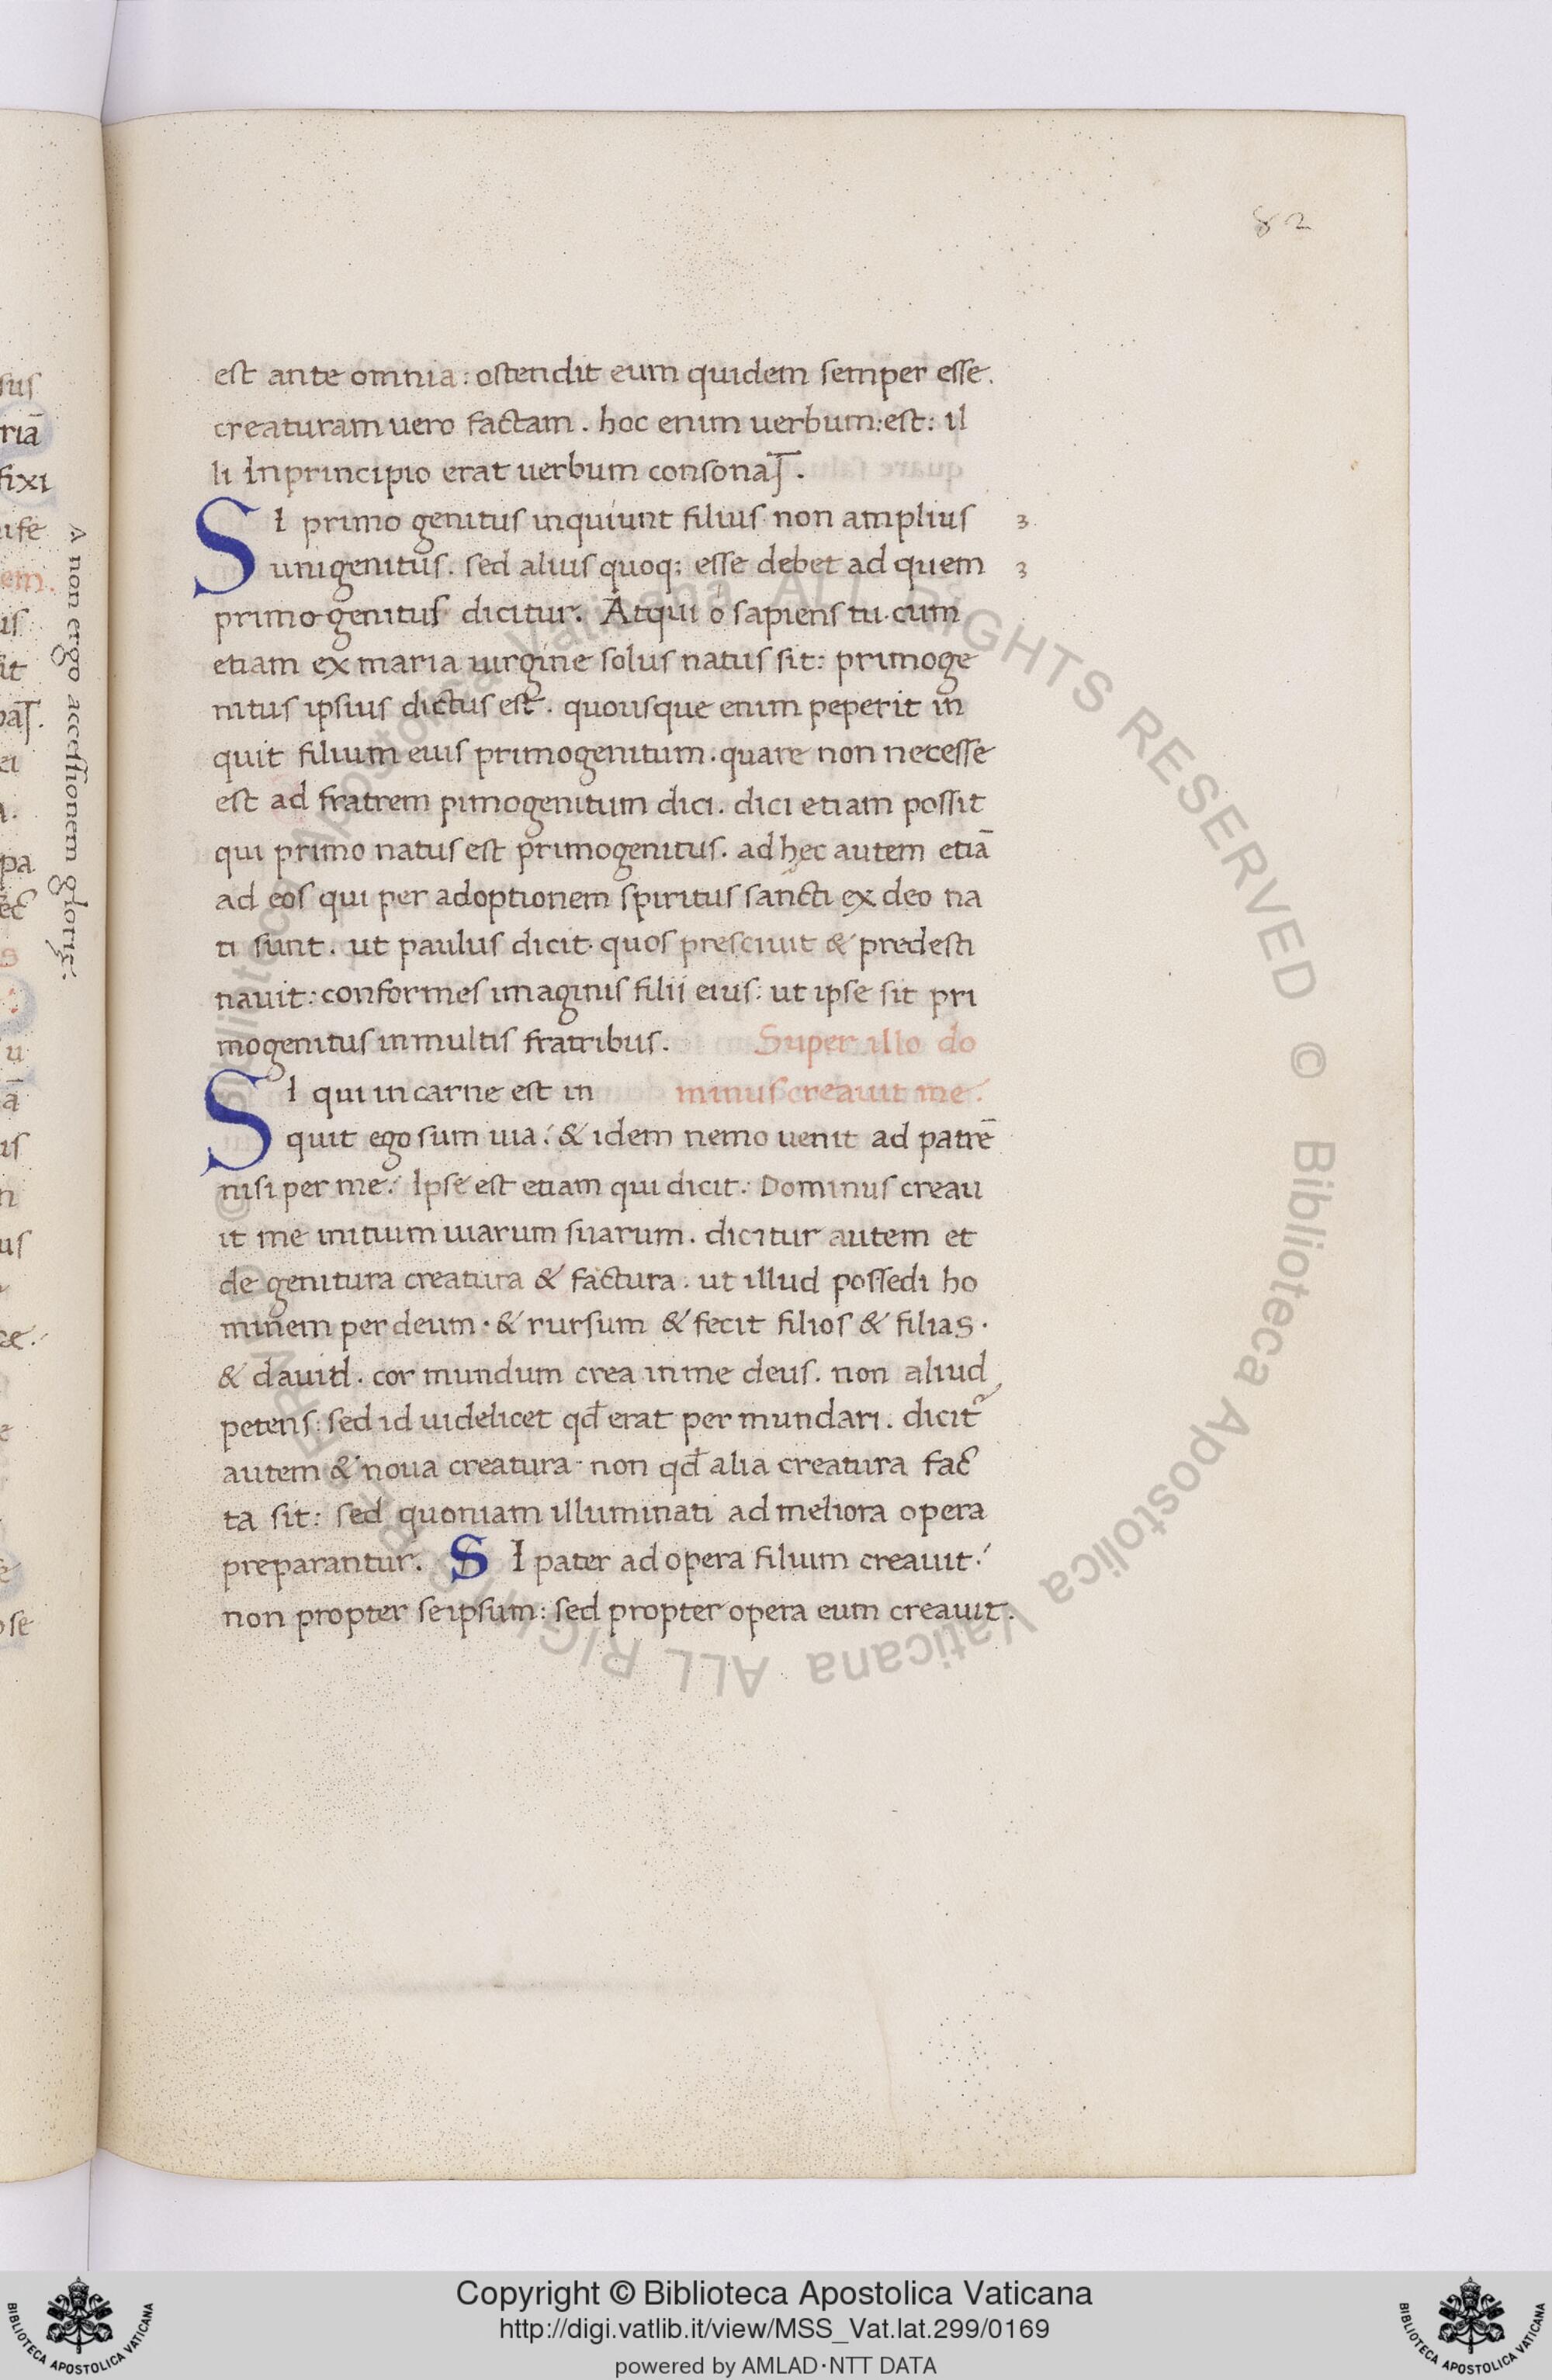 82
est ante omnia: ostendit eum quidem semper esse.
creaturam uero factam. hoc enim uerbum: est: il
li Inprincipio erat uerbum consonaʃ̄.
SI primo genitus inquiunt filius non amplius 3
unigenitus. sed alius quoq; esse debet ad quem 3
primo genitus dicitur. Atqui o sapiens tu. cum
etiam ex maria uirgine solus natus sit: primoge
nitus ipsius dictus est. quousque enim peperit in
quit filium euis primogenitum. quare non necesse
est ad fratrem pimogenitum dici. dici etiam possit
qui primo natus est primogenitus. ad hec autem etiā
ad eos qui per adoptionem spiritus sancti ex deo na
ti sunt. ut paulus dicit. quos presciuit & predesti
nauit: conformes imaginis filii eius: ut ipse sit pri
mogenitus in multis fratribus. Super illo do
minus creauit me:
SI qui in carne est in
quit ego sum uia: & idem nemo uenit ad patrē
nisi per me: Ipse est etiam qui dicit: Dominus creau
it me initium uiarum suarum. dicitur autem et
de genitura creatura & factura. ut illud possedi ho
minem per deum. & rursum & fecit filios & filias.
& dauid. cor mundum crea in me deus. non aliud
petens: sed id uidelicet qđ erat per mundari. dicit᷑
autem & noua creatura. non qđ alia creatura fac
ta sit: sed quoniam illuminati ad meliora opera
preparantur. SI pater ad opera filium creauit:
non propter seipsum: sed propter opera eum creauit.
A non ergo accessionem glorię:
© Biblioteca Apostolica Vaticana ALL RIGHTS RESERVED
© Biblioteca Apostolica Vaticana ALL RIGHTS RESERVED
Copyright © Biblioteca Apostolica Vaticana
http://digi.vatlib.it/view/MSS_Vat.lat.299/0169
powered by AMLAD·NTT DATA
BIBLIOTECA APOSTOLICA VATICANA
BIBLIOTECA APOSTOLICA VATICANA